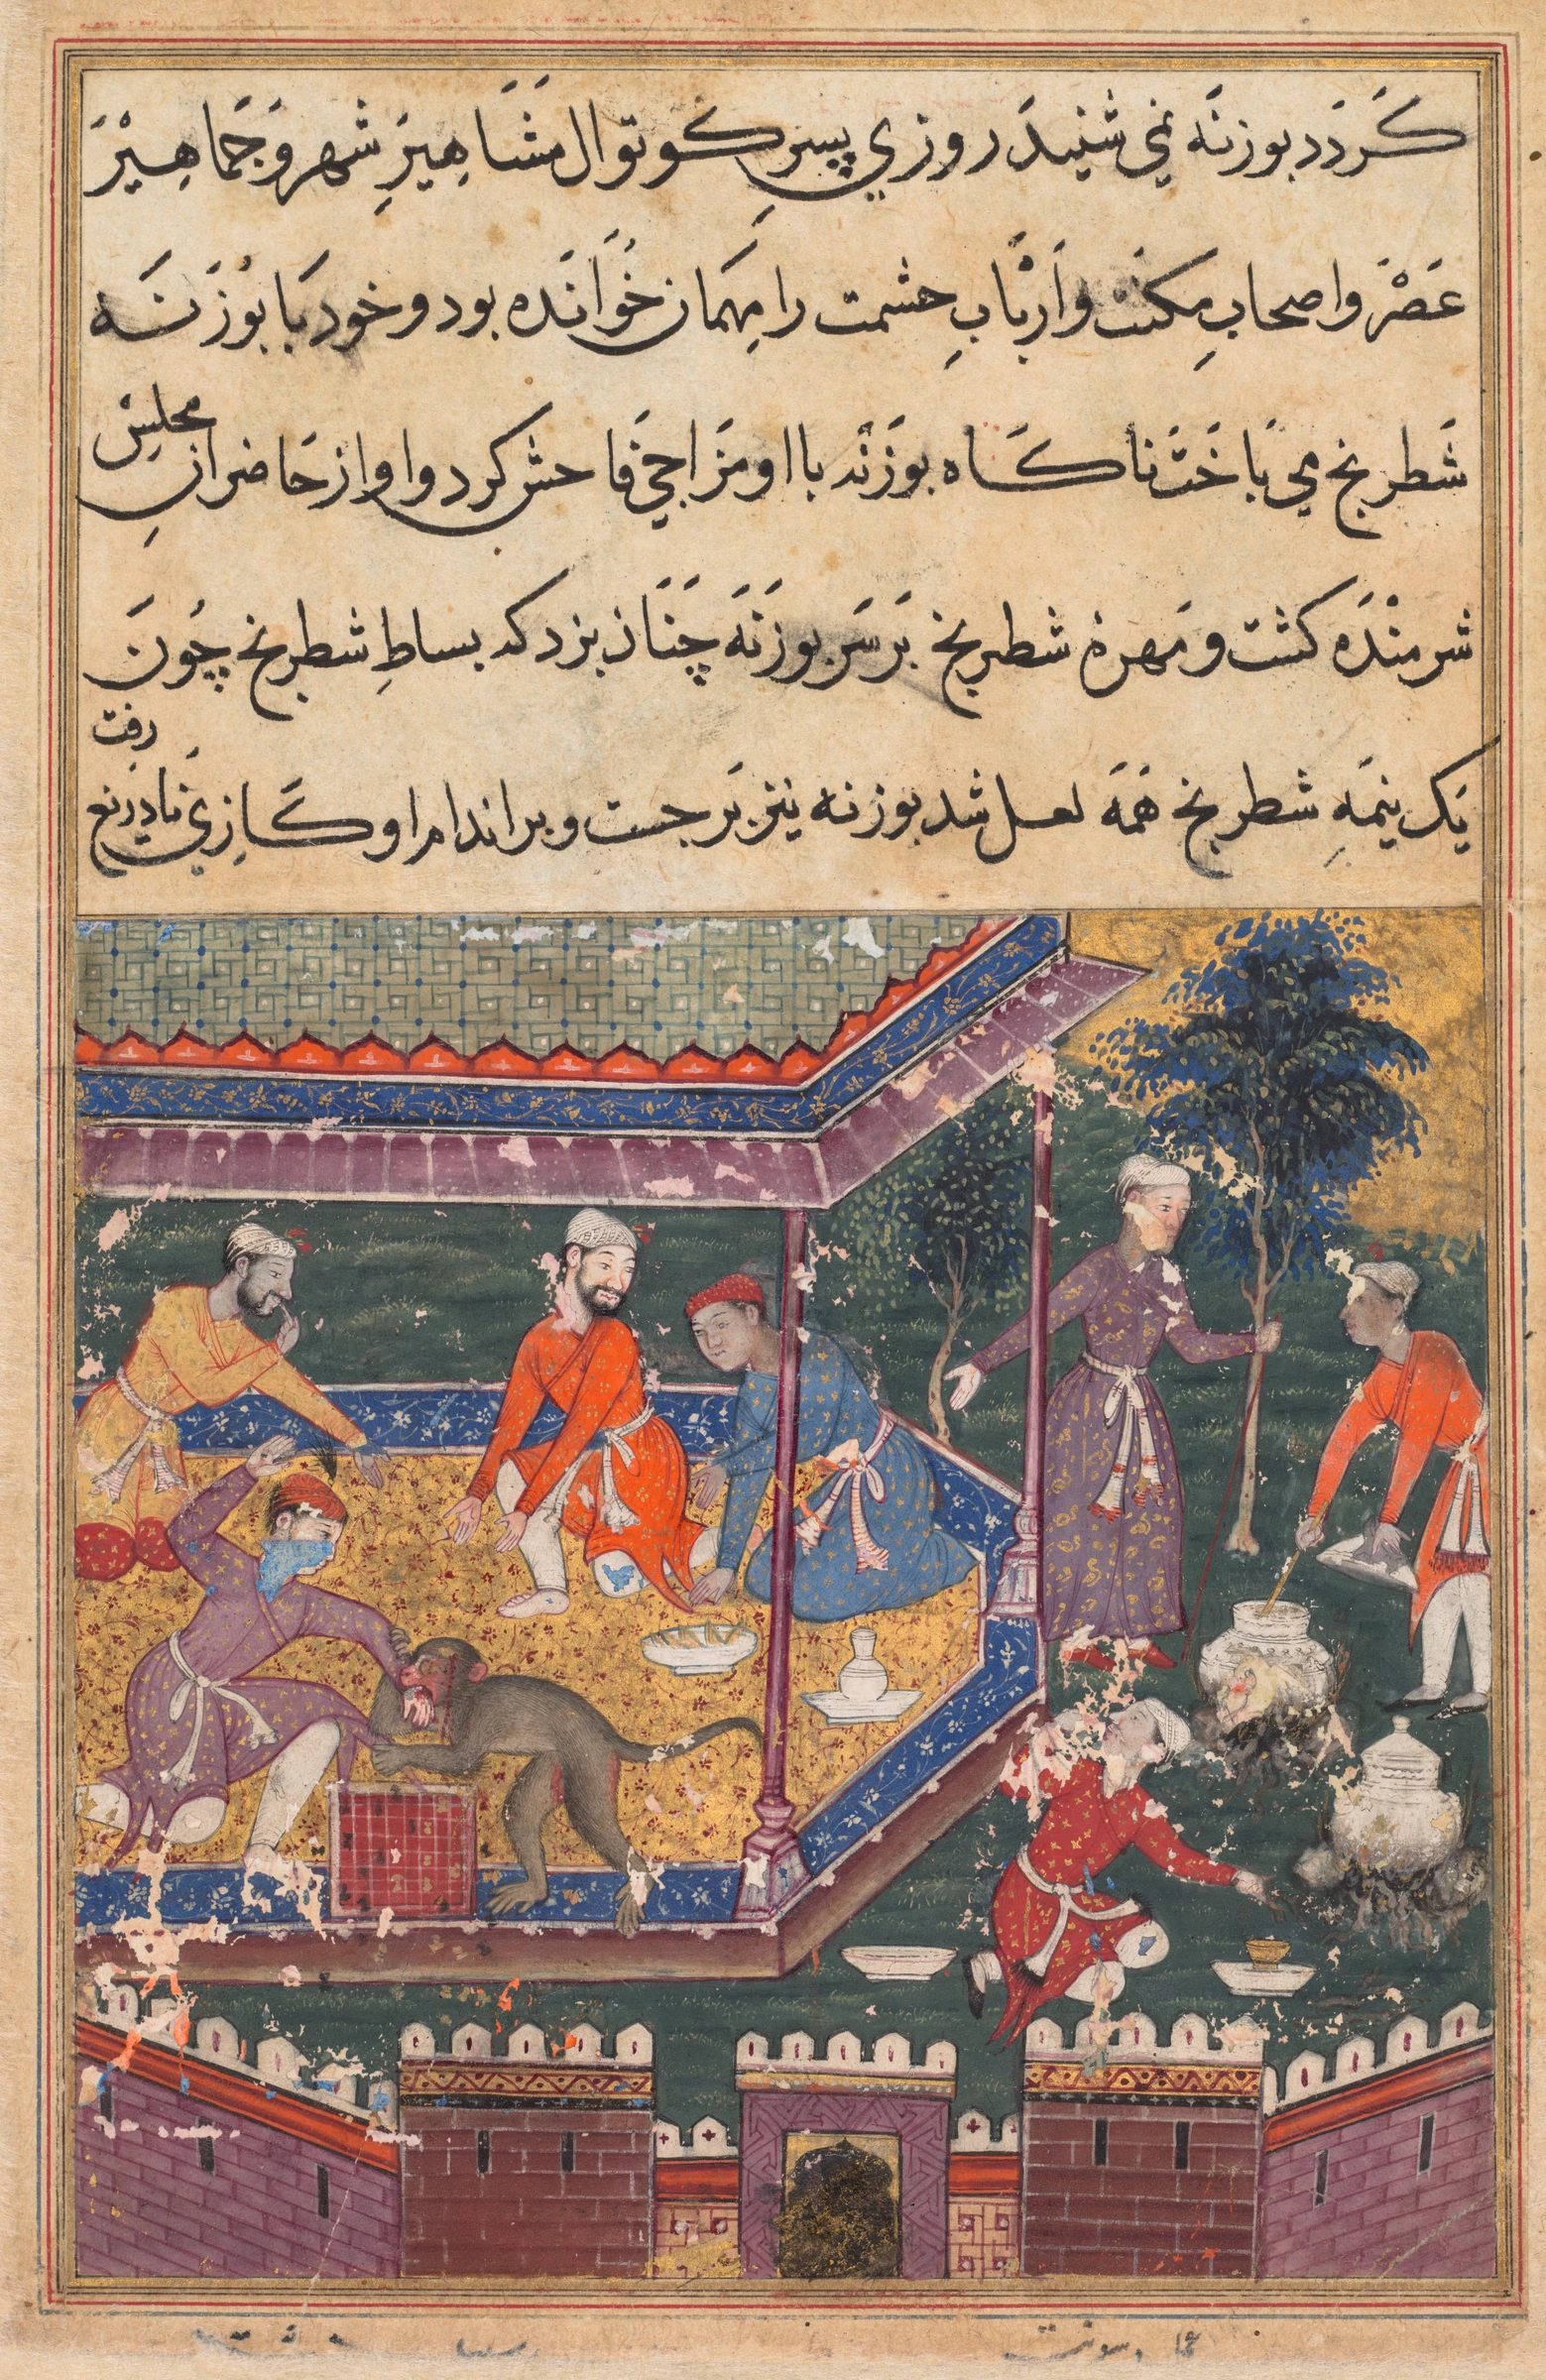 کَردَد بوزنَه نمی شنیدَ روزی پسرِ کوتوال مَشَاهِیرِ شهر وَ جَمَاهِیْرَ
عَصْرْ و اصحابِ مکنت و اَرْبَابِ حشمت را مِهمَان خُوَانَده بود و خود بَا بُوْزَنَه
شَطرنج می بَاخَتْ ناکَاه بوزَنَه با او مَزَاحِی فَاحش کرد و او از حَاضرانِ مجلِسْ
شرمنْدَه کشت و مَهرهٔ شطرنج بَر سَر بوزَنَه چَنَان بزد که بساطِ شطرنج چُونَ
یَک نِیمَهِ شطرنج هَمَه لعل شد بوزنه نیز بَرجست و بر اندام او کَازِی رفت